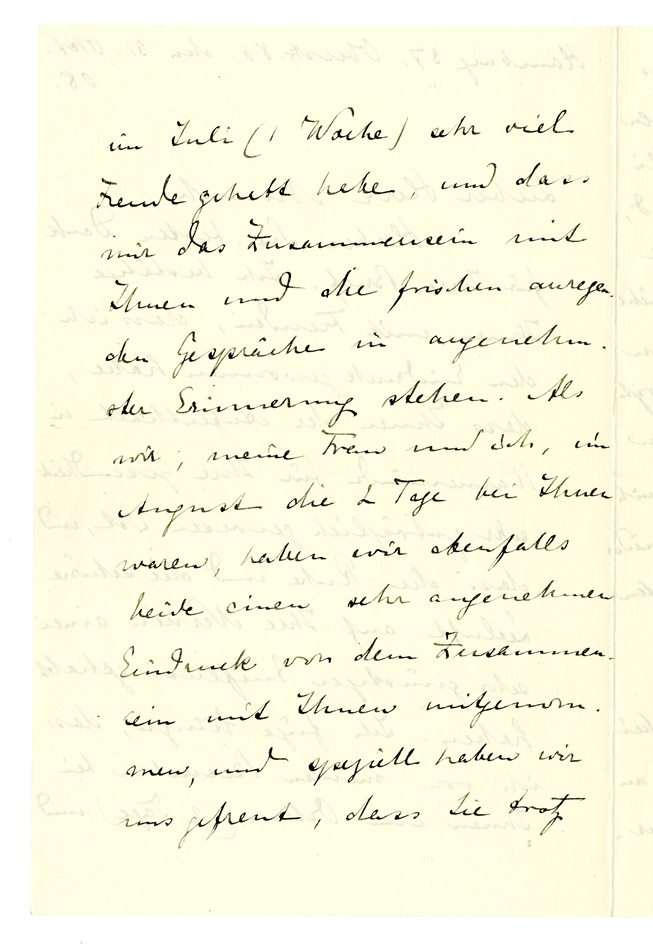 im Juli (1 Woche) sehr viel
Freude gehabt habe, und dass
mir das Zusammensein mit
Ihnen und die frischen anregen-
den Gespräche in angenehm-
ster Erinnerung stehen. Als
wir, meine Frau und ich, im
August die 2 Tage bei Ihnen
waren, haben wir ebenfalls
beide einen sehr angenehmen
Eindruck von dem Zusammen-
sein mit Ihnen mitgenom-
men, und speziell haben wir
uns gefreut, dass Sie trotz